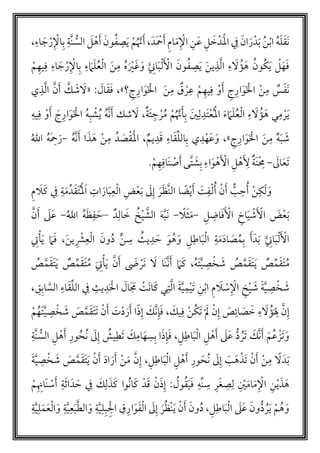 نَقَلَ هُوَ ابْنُ بَدْرَانَ فِي الْمَدْخَلِ عَنِ الْإِمَامِ أَحْمَدَ، أَنَّهُمْ يَصِفُونَ أَهْلَ السُّنَّةِ بِالْإِرْجَاءِ،
فَهَلْ يَكُونُ هَؤُلَاءِ الَّذِينَ يَصِفُونَ الْأَلْبَانِيَّ وَغَيْرَهُ مِنَ الْعُلَمَاءِ بِالْإِرْجَاءِ فِيهِمْ
نَفَسٌ مِنَ الْخَوَارِجِ أَوْ فِيهِمْ عِرْقٌ مِنَ الْخَوَارِجِ؟»، فَقَالَ: «لَا شَكَّ أَنَّ الَّذِي
يَرْمِي هَؤُلَاءِ الْعُلَمَاءَ الْمُعْتَدِلِينَ بِأَنَّهُمْ مُرْجِئَةٌ، لَا شَكَّ أَنَّهُ يُشْبِهُ الْخَوَارِجَ أَوْ فِيهِ
شَبَهٌ مِنَ الْخَوَارِجِ»، وَعَهْدِي بِاللِّقَاءِ قَدِيمٌ، الْمَقْصُدُ مِنْ هَذَا أَنَّهُ - رَحِمَهُ اللهُ
تَعَالَى- مِحْنَةٌ لِأَهْلِ الْأَهْوَاءِ بِشَتَّى أَصْنَافِهِمْ.
وَلَكِنْ أُحِبُّ أَنْ أُلْفِتَ أَيْضًا النَّظَرَ إِلَى بَعْضِ الْعِبَارَاتِ الْمُتَقَدِّمَةِ فِي كَلَامِ
بَعْضِ الْمَشَايِخِ الْأَفَاضِلِ، -مَثَلًا- نَبَّهَ الشَّيْخُ خَالِدٌ –حَفِظَهُ اللهُ- عَلَى أَنَّ
الْأَلْبَانِيَّ بَدَأَ بِمُصَادَمَةِ الْبَاطِلِ وَهُوَ حَدِيثُ سِنٍّ دُونَ الْعِشْرِينَ، فَمَا يَأْتِي
مُنْتَقِصٌ يَتَنَقَّصُ شَخْصِيَّتَهُ، كَمَا أَنَّنَا لَا نَرْضَى أَنْ يَأْتِيَ مُنْتَقِصٌ يَتَنَقَّصُ
شَخْصِيَّةَ شَيْخِ الْإِسْلَامِ ابْنِ تَيْمِيَّةَ الَّتِي كَانَتْ مَجَالَ الْحَدِيثِ فِي اللِّقَاءِ السَّابِقِ،
إِنَّ لِهَؤُلَاءِ خَصَائِصَ إِنْ لَمْ تَكُنْ فِيكَ، فَإِنَّكَ إِذَا أَرَدْتَ أَنْ تَتَقَمَّصَ شَخْصِيَّتَهُمْ
وَتَزْعُمَ أَنَّكَ تَرُدُّ عَلَى أَهْلِ الْبَاطِلِ، فَإِذَا بِسِهَامِكَ تَطِيشُ إِلَى نُحُورِ أَهْلِ السُّنَّةِ
بَدَلًا مِنْ أَنْ تَذْهَبَ إِلَى نُحُورِ أَهْلِ الْبَاطِلِ، إِنَّ مَنْ أَرَادَ أَنْ يَتَقَمَّصَ شَخْصِيَّةَ
هَذَيْنِ الْإِمَامَيْنِ لِصِغَرِ سِنِّهِ فَيَقُولُ: إِذَنْ قَدْ كَانُوا كَذَلِكَ فِي حَدَاثَةِ أَسْنَانِهِمْ
وَهُمْ يَرُدُّونَ عَلَى أَهْلِ الْبَاطِلِ، دُونَ أَنْ يَنْظُرَ إِلَى الْفَوَارِقِ الْجِبِلِّيَّةِ وَالطَّبْعِيَّةِ وَالْعَمَلِيَّةِ